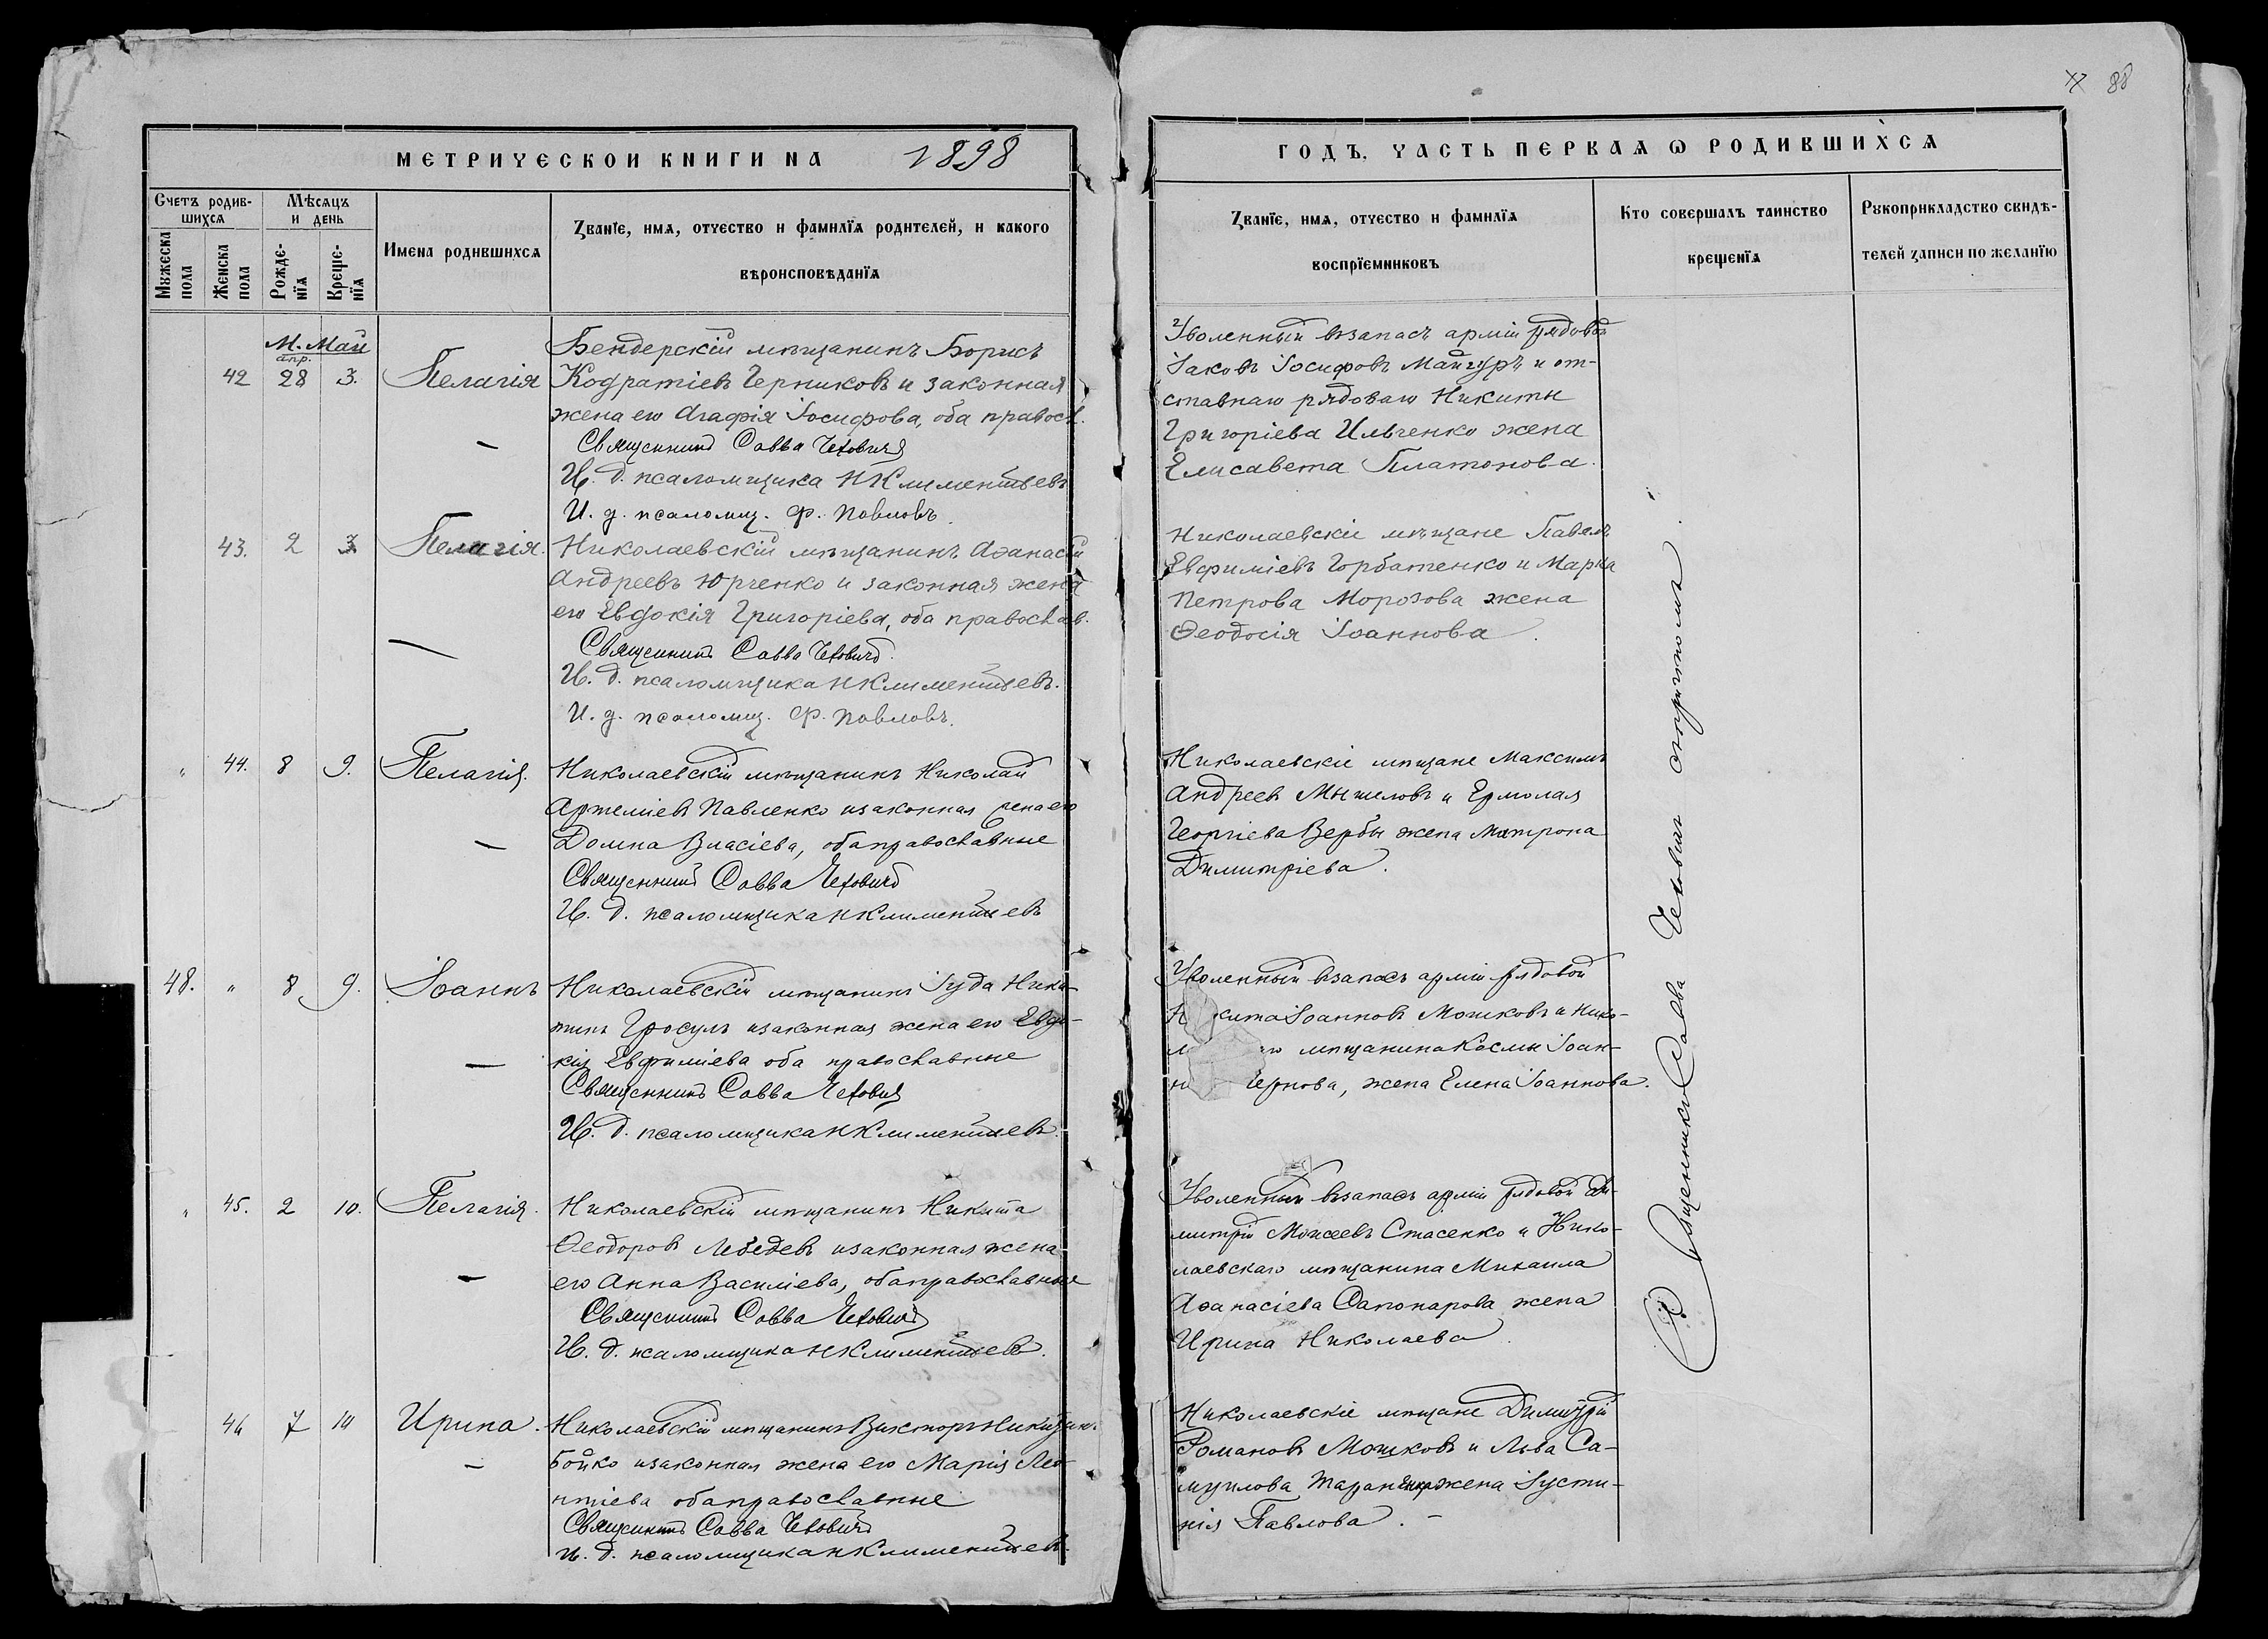 88
МЕТРИЧЕСКОЙ КНИГИ НА 1898
ГОДЪ, ЧАСТЬ ПЕРВАЯ Ѡ РОДИВШИХСЯ
Счетъ родив-
шихся
Мужеска пола
Женска пола
Мѣсяцъ
и день
Рожде-
нїя
Креще-
нїя
Имена родившихся
Званїе, имя, отчество и фамилїя родителей, и какого
вѣроисповѣданїя
Званїе, имя, отчество и фамилїя
воспрїемниковъ
Кто совершалъ таинство
крещенїя
Рукоприкладство свидѣ-
телей записи по желанїю
М. Май
апр.
42 28 3. Пелагія
Бендерскій мѣщанинъ Борисъ
Кодратіевъ Черниковъ и законная
жена его Агафія Іосифова, оба правосл.
Священникъ Савва Чехович
И. д. псаломщика Н Климентьевъ
И. д. псаломщ. Ф. Павловъ
Уволенный въ запасъ арміи рядовой
Іаковъ Іосифовъ Мангуръ и от-
ставнаго рядоваго Никиты
Григоріева Ильченко жена
Елисавета Платонова.
43. 2 3 Пелагія.
Николаевскій мѣщанинъ Аѳанасій
Андреевъ Юрченко и законная жена
его Евдокія Григоріева, оба православ.
Священникъ Савва Чехович
И. д. псаломщика Н Климентьевъ.
И. д. псаломщ. Ф. Павловъ.
Николаевскіе мѣщане Павелъ
Евфиміевъ Горбатенко и Марка
Петрова Морозова жена
Ѳеодосія Іоаннова.
" 44. 8 9. Пелагія.
Николаевскій мѣщанинъ Николай
Артеміевъ Павленко и законная жена его
Домна Власіева, оба православные
Священникъ Савва Чехович
И. д. псаломщика Н Климентьевъ
Николаевскіе мѣщане Максимъ
Андреевъ Мышеловъ и Ермолая
Георгіева Вербы жена Матрона
Димитріева.
48. " 8 9. Іоаннъ
Николаевскій мѣщанинъ Іуда Ники-
тинъ Гросулъ и законная жена его Евдо-
кія Евфиміева оба православные
Священникъ Савва Чехович
И. д. псаломщика Н Климентьевъ.
Уволенный въ запасъ арміи рядовой
кита Іоанновъ Мошковъ и Нико-
го мѣщанина Космы Іоан-
Чернова, жена Елена Іоаннова.
" 45. 2 10. Пелагія.
Николаевскій мѣщанинъ Никита
Ѳеодоровъ Лебедевъ и законная жена
его Анна Василіева, оба православные
Священникъ Савва Чехович
И. д. псаломщика Н Климентьевъ.
Уволенный въ запасъ арміи рядовой Ди-
митрій Моисеевъ Стасенко и Нико-
лаевскаго мѣщанина Михаила
Аѳанасіева Сапонарова жена
Ирина Николаева.
46 7 10 Ирина.
Николаевскій мѣщанинъ Викторъ Никитин.
Бойко и законная жена его Марія Лео-
нтіева оба православные
Священникъ Савва Чехович
И. д. псаломщика Н Климентьевъ.
Николаевскіе мѣщане Димитрій
Романовъ Мошковъ и Льва Са-
муилова Тараненко жена Іусти-
нія Павлова.
Священникъ Савва Чехович с причтомъ.